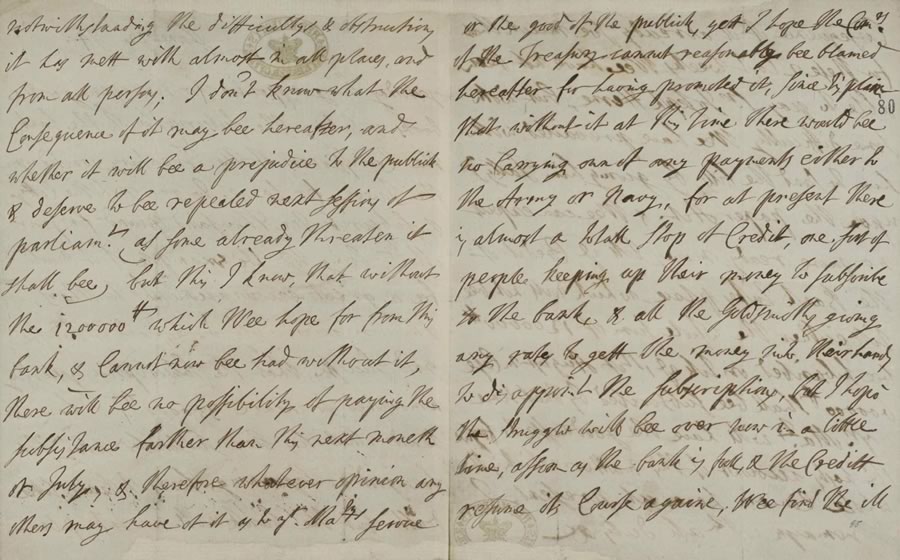 notwithstanding the difficultys & obstruction
it has mett with almost in all places, and
from all persons. I don't know what the
Consequence of it may bee hereafter, and
whether it will bee a prejudice to the publick
& deserve to bee repealed next session of
parliamt. as some already threaten it
shall bee, but this I know, that without
the 1200000tt which Wee hope for from this
bank, & Cannot now bee had without it,
there will bee no possibility of paying the
subsistance farther than this next moneth
of July, & therefore whatever opinion any
others may have of it as to yr Matys service
or the good of the publick, yett I hope the Comrs
of the Treasury cannot reasonably bee blamed
hereafter for having promoted it, since tis plain
80
that without it at this time there would bee
no Carrying on of any payments either to
the Army or Navy, for at present there
is almost a totall stop of Credit, one sort of
people keeping up their money to subscribe
to the bank, & all the Goldsmiths giving
any rates to gett the money into their hands
to disappoint the subscriptions, but I hope
the struggle will bee over now in a little
time, assoon as the bank is full, & the Creditt
resume its Course againe, Wee find the ill